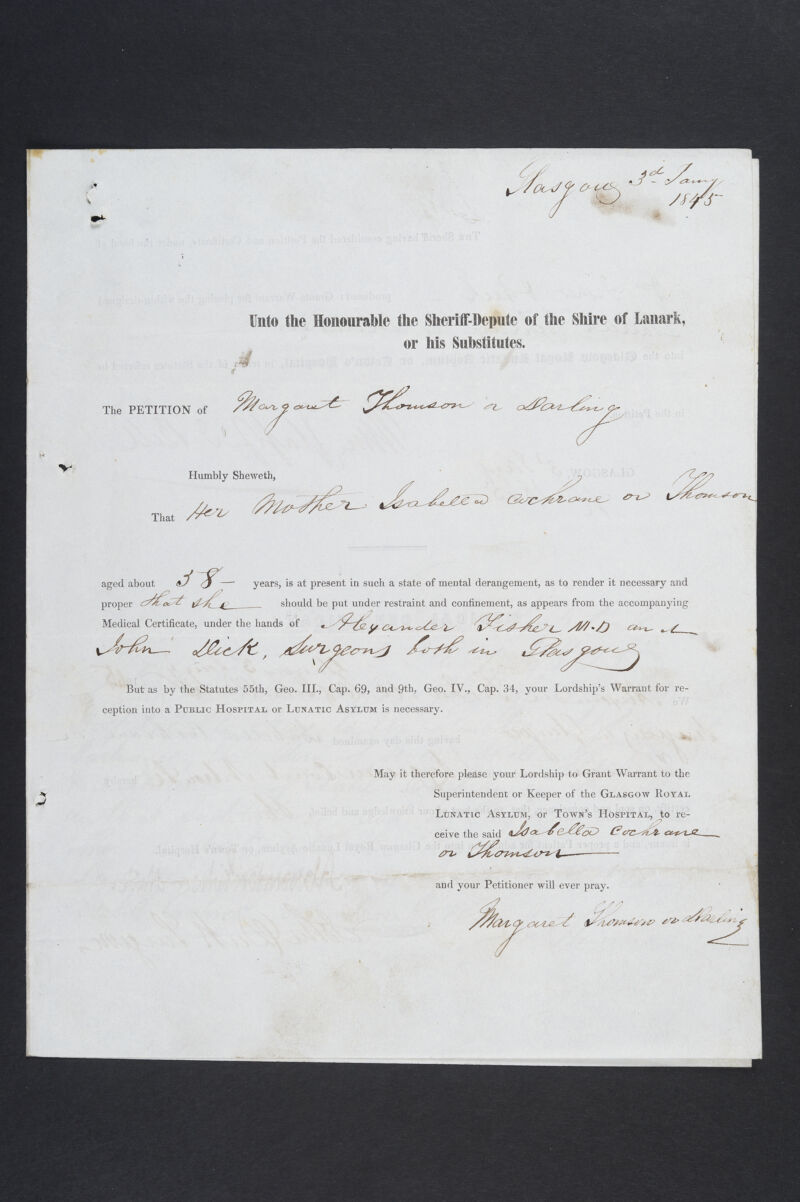 Glasgow 3d Jany
1845
Unto the Honourable the Sheriff-Depute of the Shire of Lanark,
or his Substitutes.
The PETITION of Margaret Thomson or Darling
Humbly Sheweth,
That Her Mother Isabella Cochrane or Thomson
aged about 58 — years, is at present in such a state of mental derangement, as to render it necessary and
proper that she should be put under restraint and confinement, as appears from the accompanying
Medical Certificate, under the hands of Alexander Fisher M.D and
John Dick, Surgeons both in Glasgow
But as by the Statutes 55th, Geo. III., Cap. 69, and 9th, Geo. IV., Cap. 34, your Lordship's Warrant for re-
ception into a PUBLIC HOSPITAL or LUNATIC ASYLUM is necessary.
May it therefore please your Lordship to Grant Warrant to the
Superintendent or Keeper of the GLASGOW ROYAL
LUNATIC ASYLUM, or TOWN'S HOSPITAL, to re-
ceive the said Isabella Cochrane
or Thomson
and your Petitioner will ever pray.
Margaret Thomson or Darling